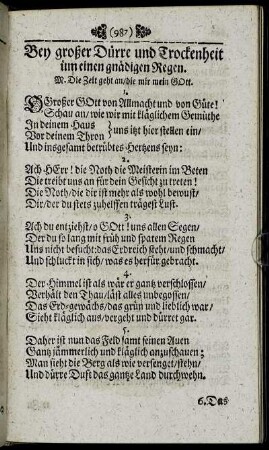 (987)
Bey großer Dürre und Trockenheit
um einen gnädigen Regen.
M. Die Zeit geht an/die mir mein GOtt.
1.
O Großer GOtt von Allmacht und von Güte!
Schau an/ wie wir mit kläglichem Gemüthe
In deinem Haus
Vor deinem Thron } uns itzt hier stellen ein/
Und insgesamt betrübtes Hertzens seyn:
2.
Ach HErr! die Noth die Meisterin im Beten
Die treibt uns an für dein Gesicht zu treten!
Die Noth/die dir ist mehr als wohl bewust/
Dir/der du stets zu helffen trägest Lust.
3.
Ach du entziehst/o GOtt! uns allen Segen/
Der du so lang mit früh und spatem Regen
Uns nicht besucht: das Erdreich steht/und schmacht/
Und schluckt in sich/ was es herfür gebracht.
4.
Der Himmel ist als wär er gantz verschlossen/
Verhält den Thau/läst alles unbegossen/
Das Erdgewächs/das grün und lieblich war/
Sieht kläglich aus/vergeht und dürret gar.
5.
Daher ist nun das Feld samt seinen Auen
Gantz jämmerlich und kläglich anzuschauen;
Man sieht die Berg als wie versenget/stehn/
Und dürre Duft das gantze Land durchwehn.
6. Das